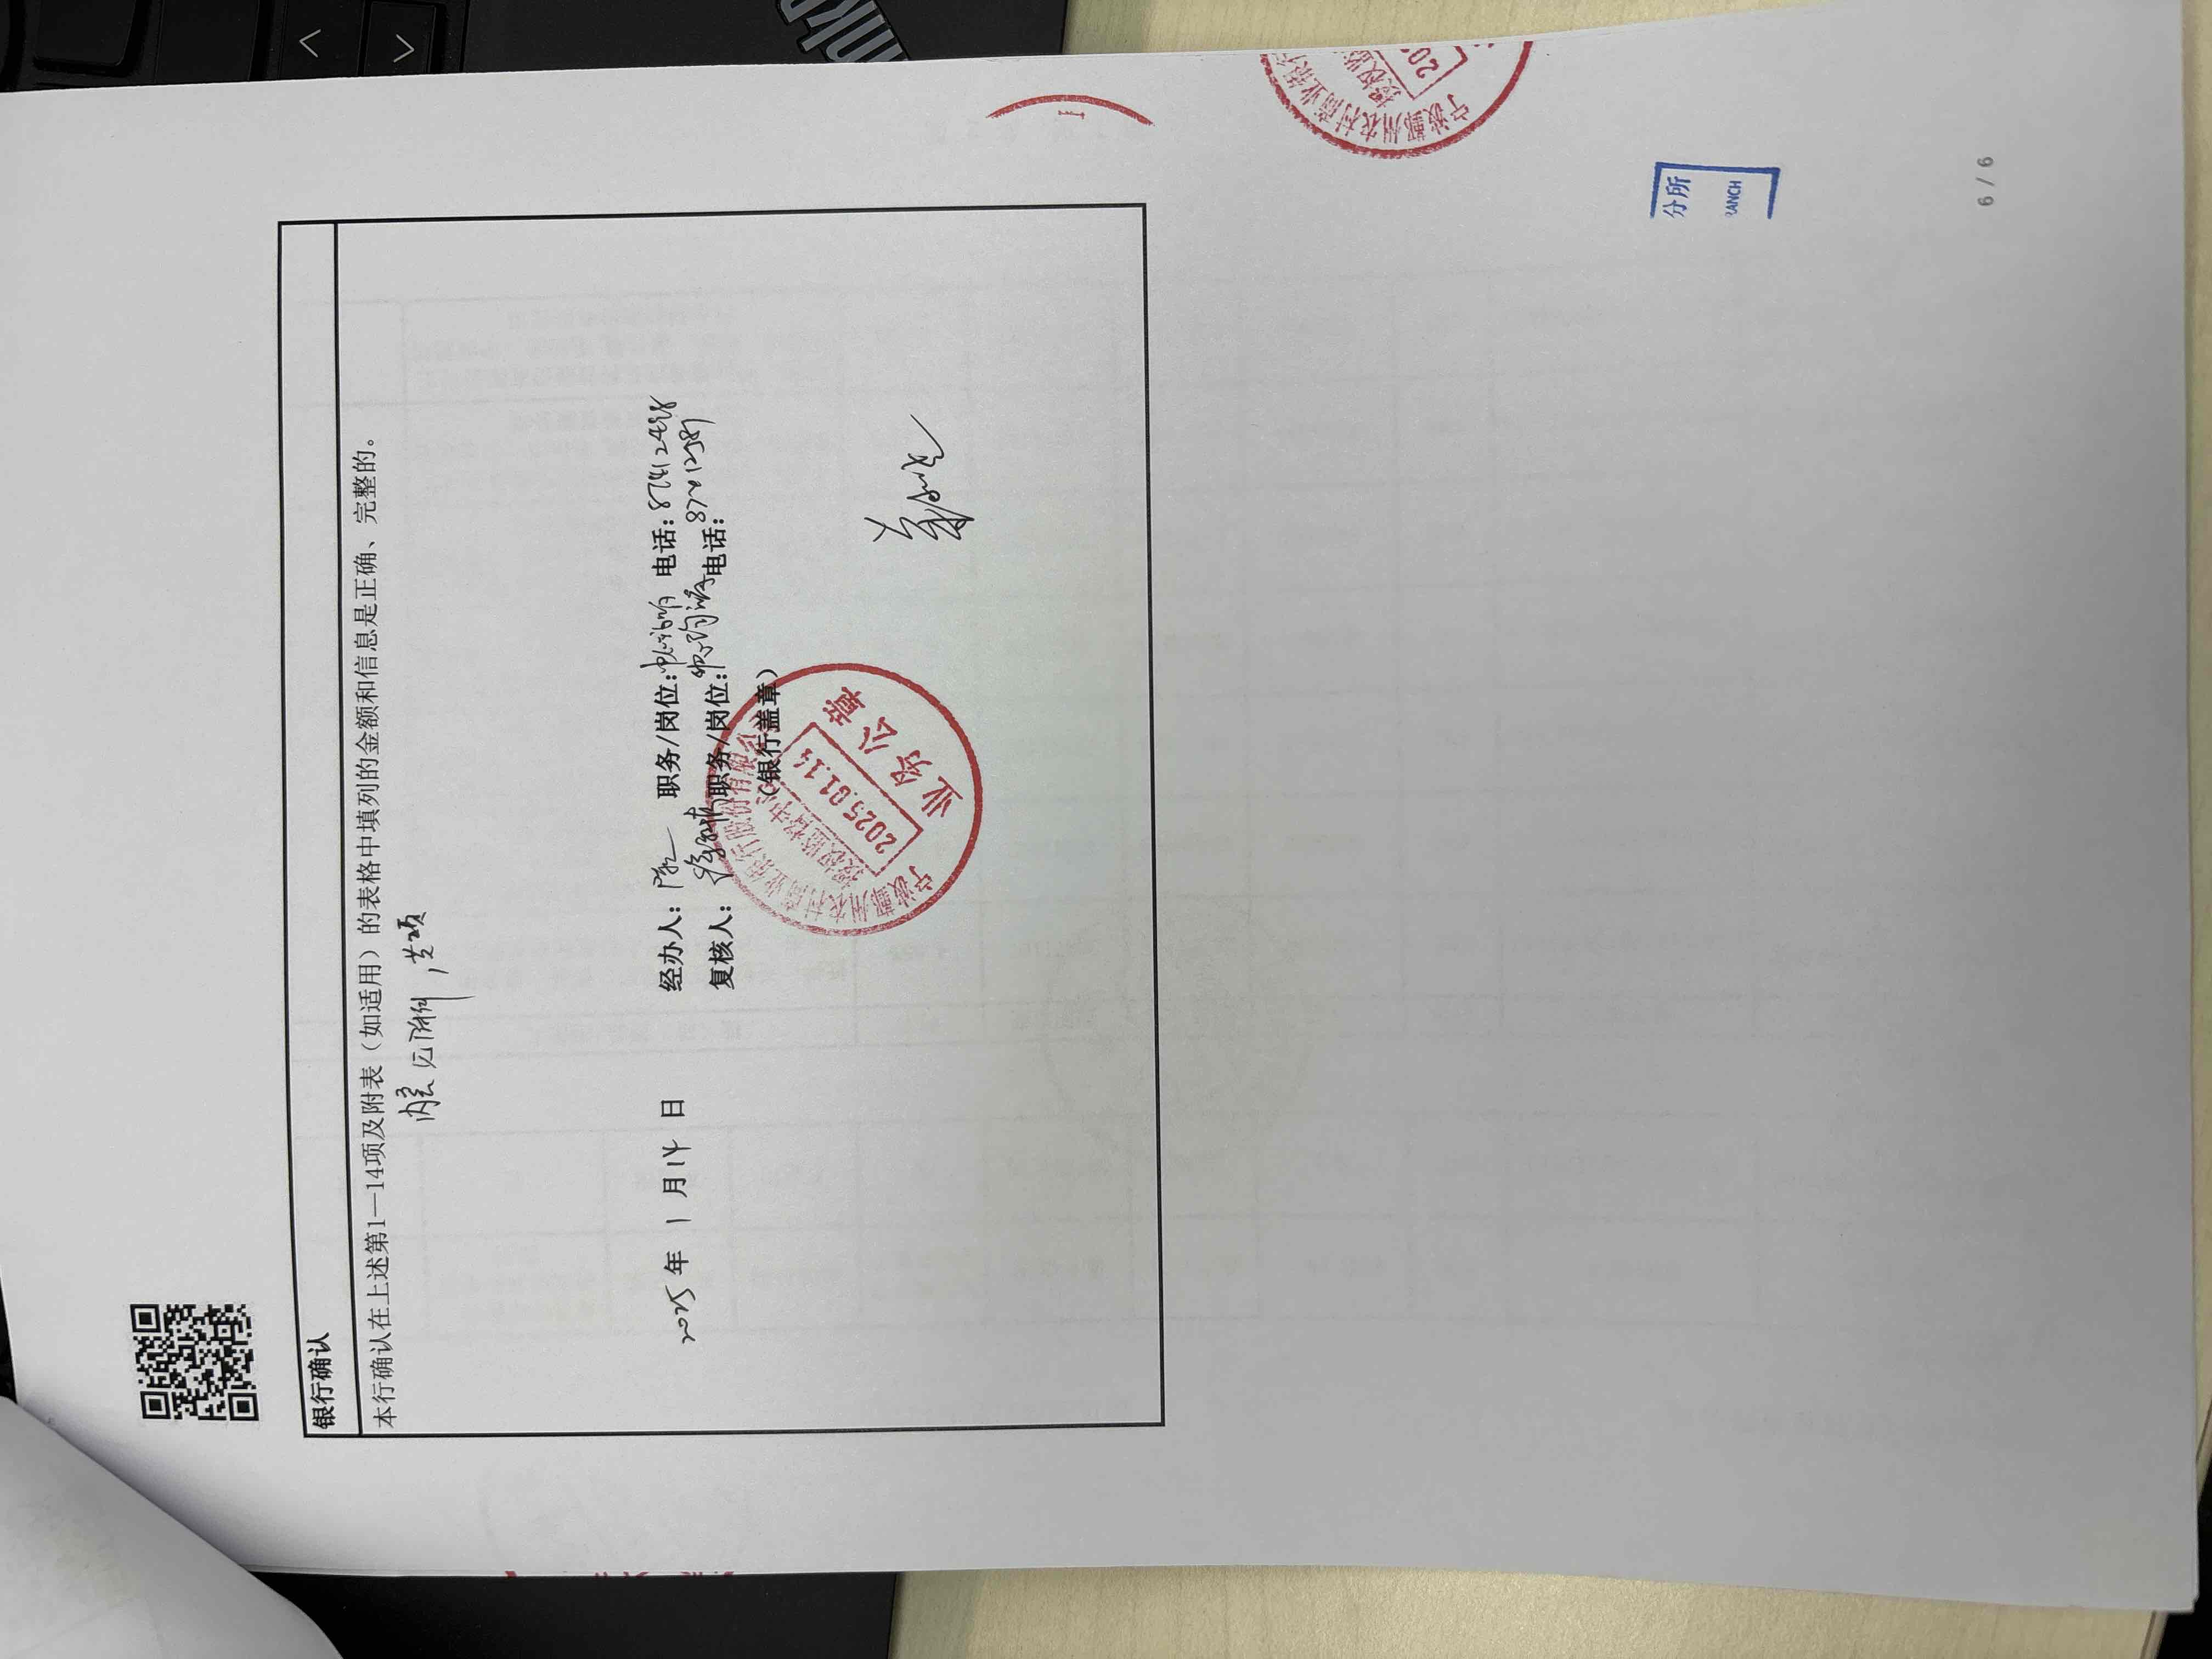 银行确认
本行确认在上述第1—14项及附表（如适用）的表格中填列的金额和信息是正确、完整的。
2025 年 1 月 14 日
经办人： 职务/岗位： 电话：87412498
复核人： 职务/岗位： 电话：
（银行盖章）
宁波鄞州农村商业银行股份有限公司
授权监督中心
2025.01.14
业务公章
宁波鄞州农村商业银行
授权监
202
分所
RANCH
6 / 6